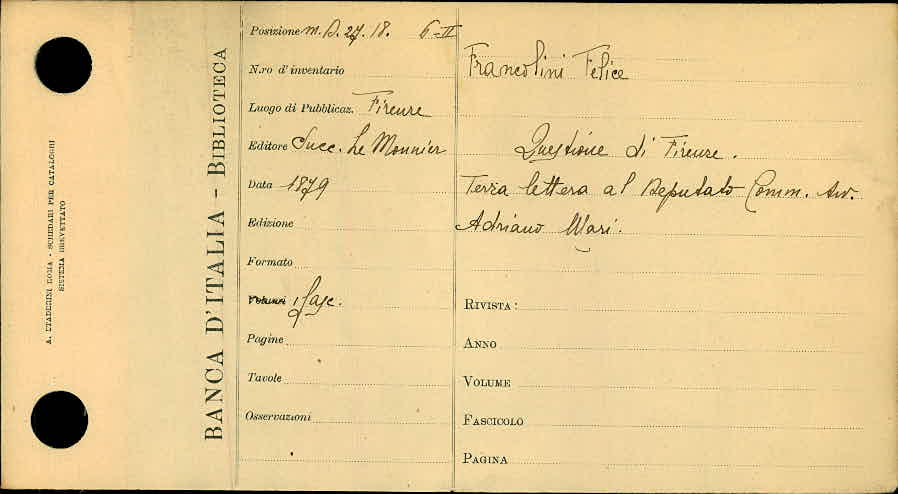 A. STADERINI ROMA - SCHEDARI PER CATALOGHI
SISTEMA BREVETTATO
BANCA D'ITALIA - BIBLIOTECA
Posizione M. D. 27. 18. 6-II
N.ro d'inventario
Luogo di Pubblicaz. Firenze
Editore Succ. Le Monnier
Data 1879
Edizione
Formato
Volumi 1 fasc.
Pagine
Tavole
Osservazioni
Francolini Felice
Questione di Firenze.
Terza lettera al Deputato Comm. Avv.
Adriano Mari.
RIVISTA:
ANNO
VOLUME
FASCICOLO
PAGINA